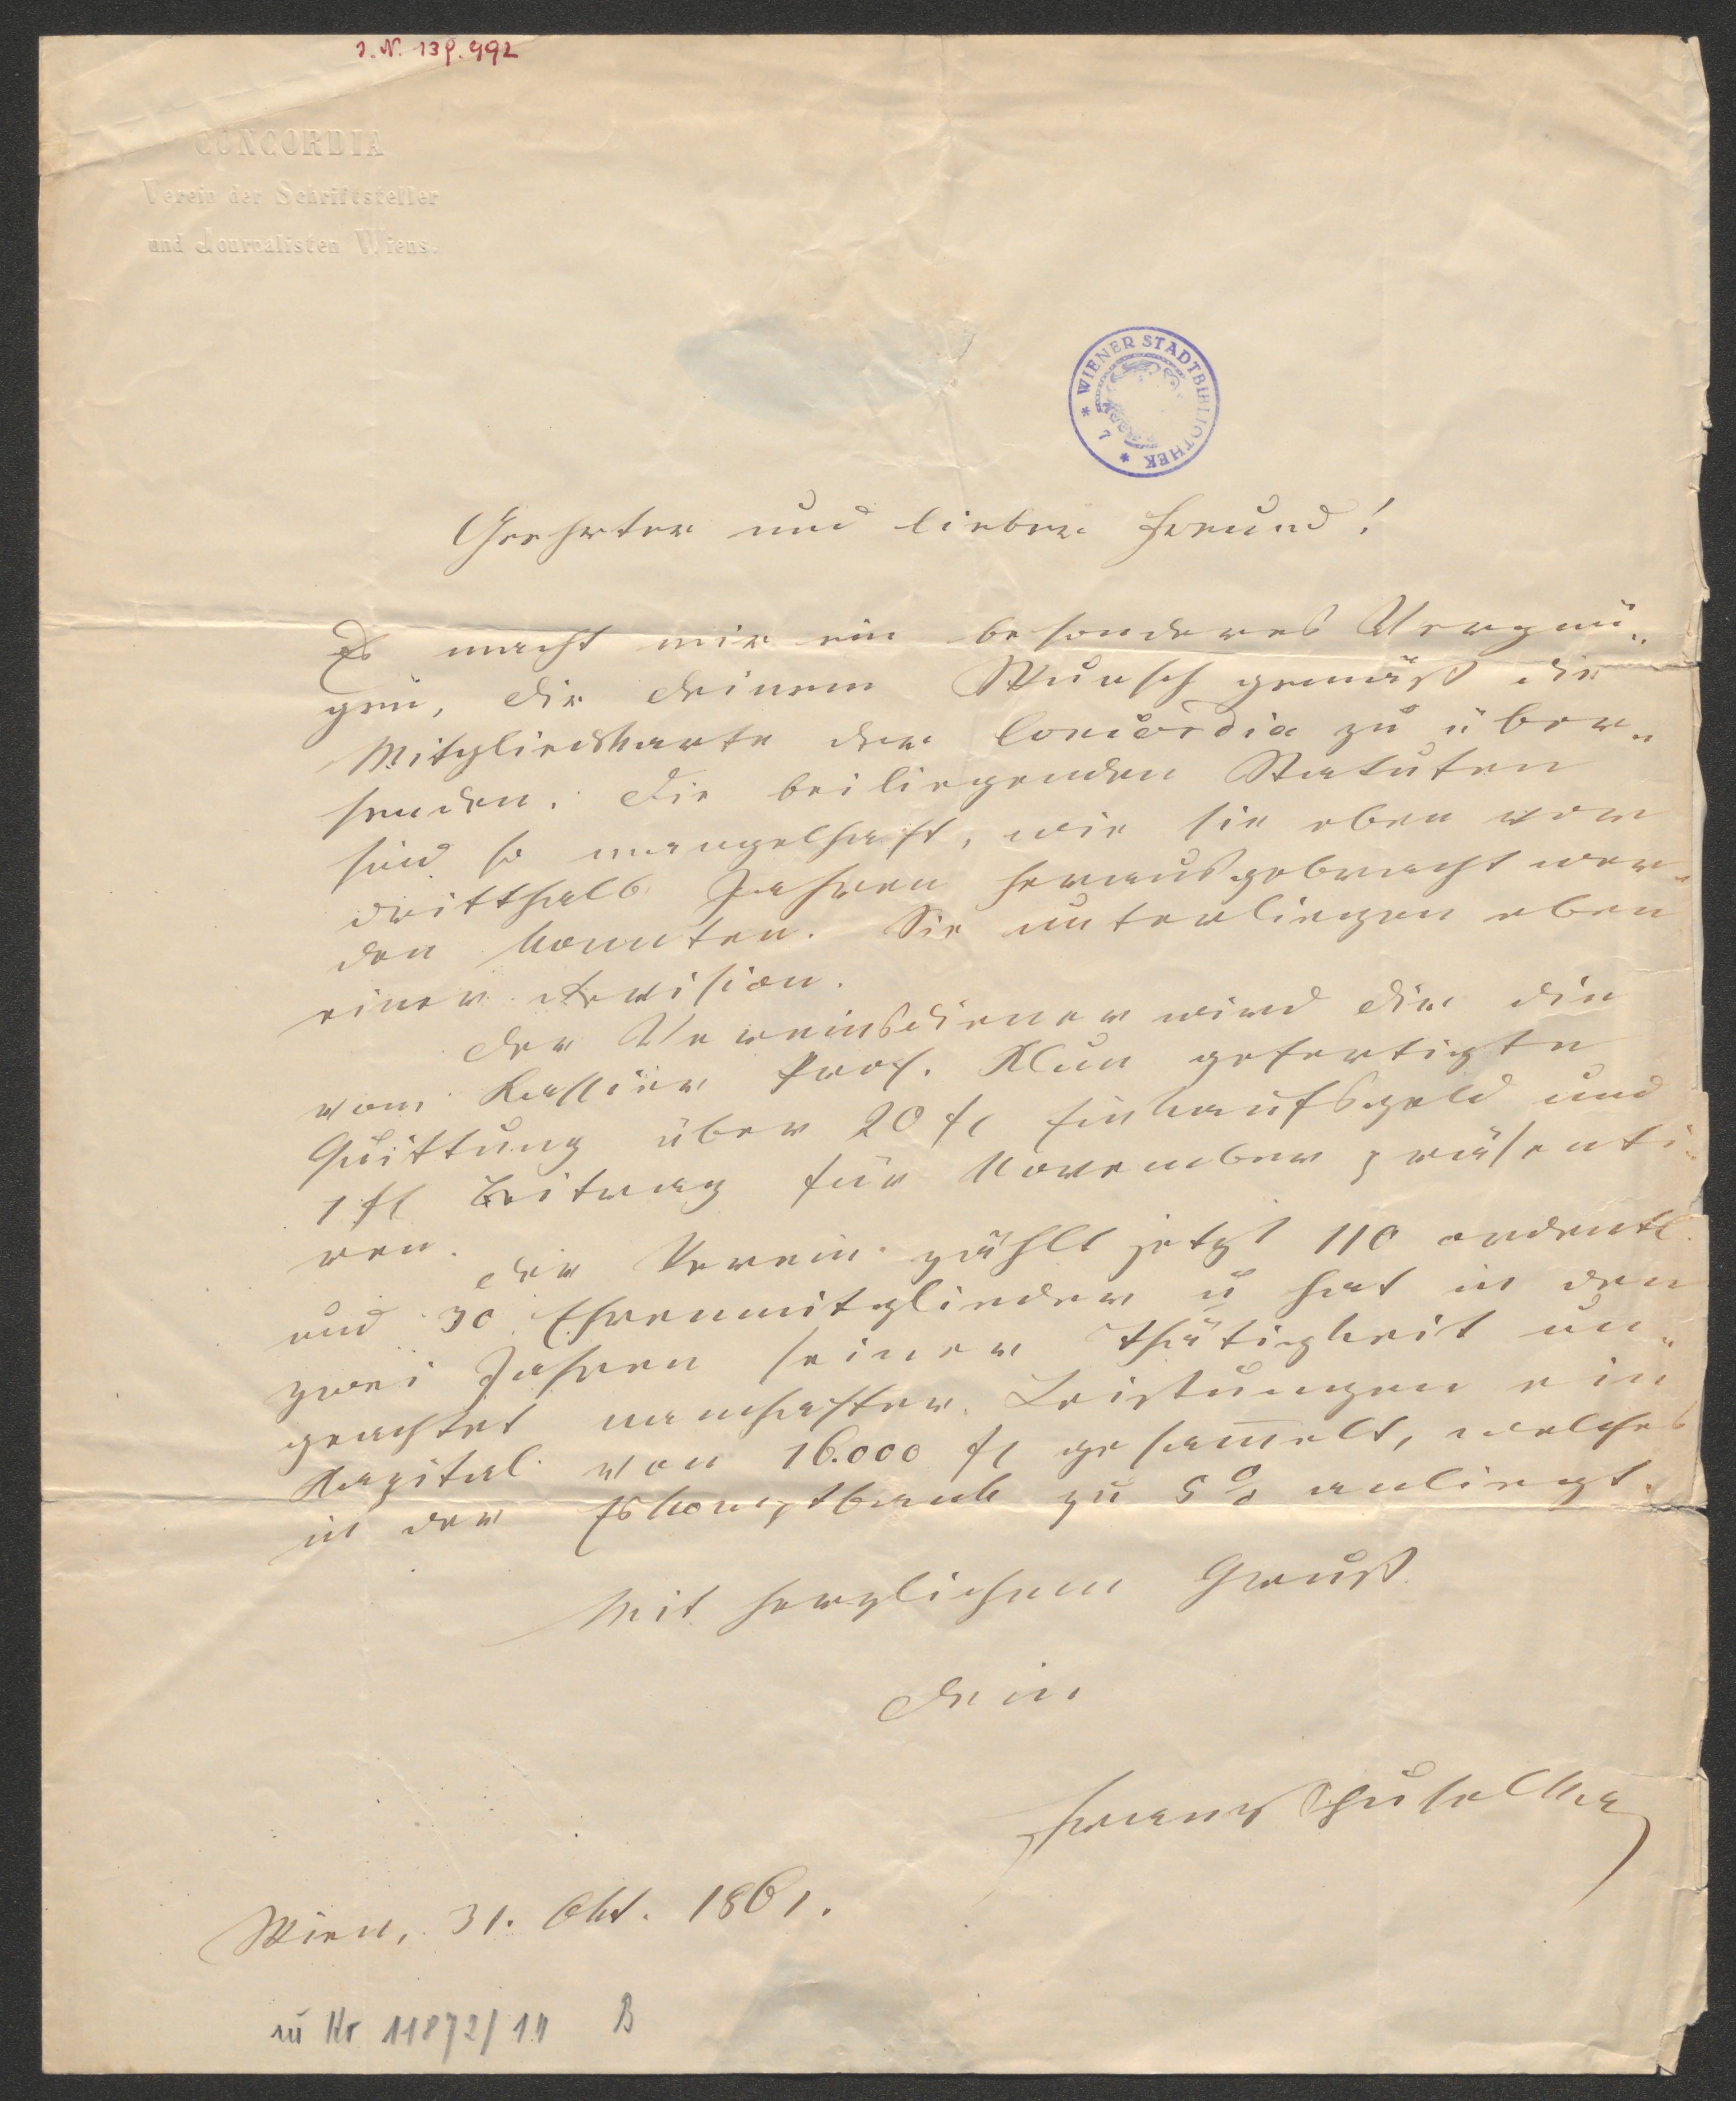 I. N. 139.992
CONCORDIA
Verein der Schriftsteller
und Journalisten Wiens.
* WIENER STADTBIBLIOTHEK * 7
Geehrter und lieber Freund!
Es macht mir ein besonderes Vergnü-
gen, Dir Deinem Wunsch gemäß die
Mitgliedskarte der Concordia zu über-
senden. Die beiliegenden Statuten
sind so mangelhaft, wie sie eben vor
dritthalb Jahren herausgebracht wer-
den konnten. Sie unterliegen eben
einer Revision.
Der Vereinsdiener wird Dir die
vom Kassier Prof. Klun gefertigte
Quittung über 20 fl Einkaufsgeld und
1 fl Beitrag für November präsenti-
ren.
Der Verein zählt jetzt 110 ordentl.
und 30 Ehrenmitglieder u hat in den
zwei Jahren seiner Thätigkeit un-
geachtet namhafter Leistungen ein
Kapital von 16.000 fl gesam̅elt, welches
in der Eskomptbank zu 5% anliegt.
Mit herzlichem Gruß
Dein
Franz Schuselka
Wien, 31. Okt. 1861.
zu Nr 11872/14 B